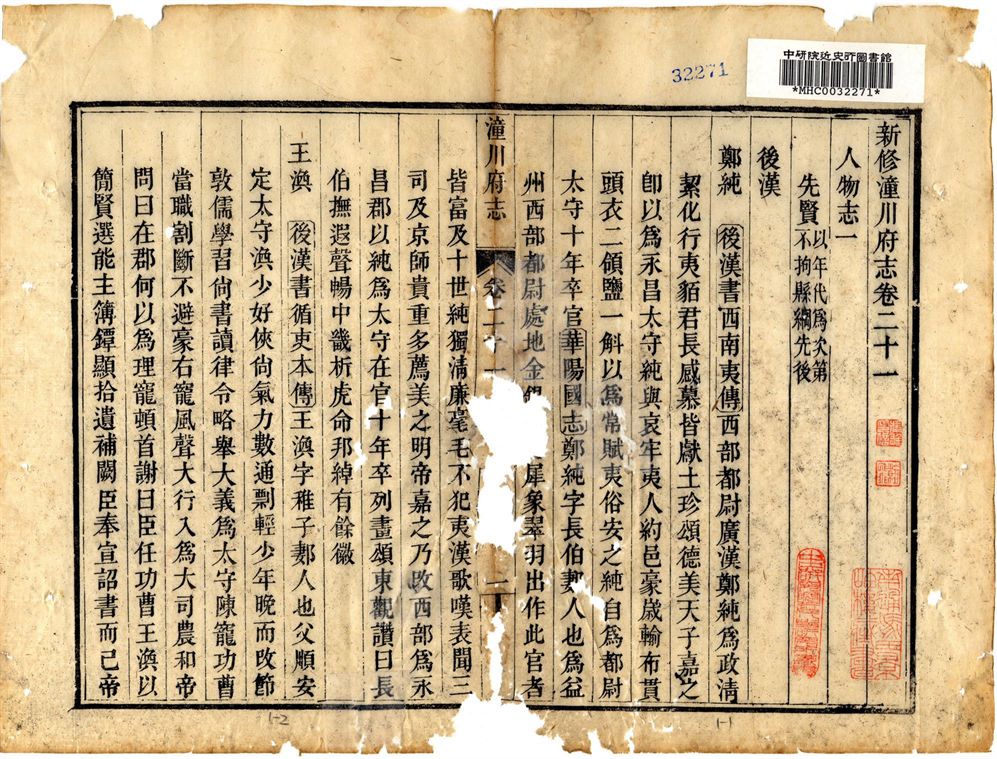 中研院近史所圖書館
*MHC0032271*
32271
新修潼川府志卷二十一
人物志一
先賢以年代為次第
不拘縣綱先後
後漢
鄭純 後漢書西南夷傳西部都尉廣漢鄭純為政清
絜化行夷貊君長感慕皆獻土珍頌德美天子嘉之
卽以為永昌太守純與哀牢夷人約邑豪歲輸布貫
頭衣二領鹽一斛以為常賦夷俗安之純自為都尉
太守十年卒官華陽國志鄭純字長伯郪人也為益
州西部都尉處地金銀犀象翠羽出作此官者
潼川府志
卷二十一
一
皆富及十世純獨清廉毫毛不犯夷漢歌嘆表聞三
司及京師貴重多薦美之明帝嘉之乃改西部為永
昌郡以純為太守在官十年卒列畫頌東觀讚曰長
伯撫遐聲暢中畿析虎命邦綽有餘徽
王渙 後漢書循吏本傳王渙字稚子郪人也父順安
定太守渙少好俠尙氣力數通剽輕少年晚而改節
敦儒學習尙書讀律令略舉大義為太守陳寵功曹
當職割斷不避豪右寵風聲大行入為大司農和帝
問曰在郡何以為理寵頓首謝曰臣任功曹王渙以
簡賢選能主簿鐔顯拾遺補闕臣奉宣詔書而已帝
1-2
1-1